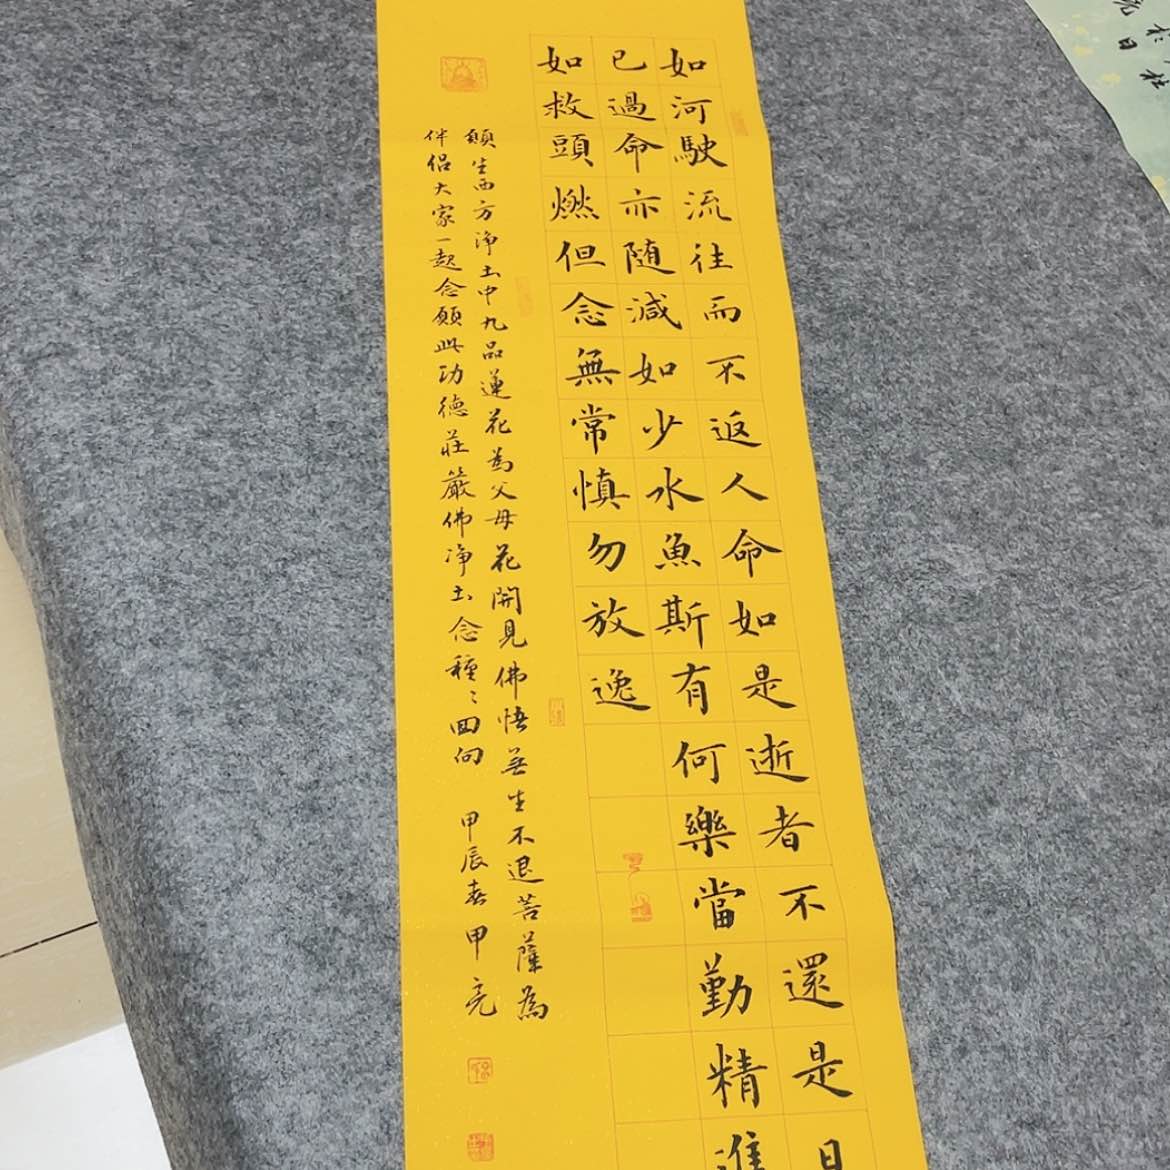 如河駛流往而不返人命如是逝者不還是日
已過命亦随減如少水魚斯有何樂當勤精進
如救頭燃但念無常慎勿放逸
願生西方浄土中九品蓮花為父母花開見佛悟無生不退菩薩為
伴侣大家一起念願此功德莊嚴佛浄土念種〻回向 甲辰春甲亮